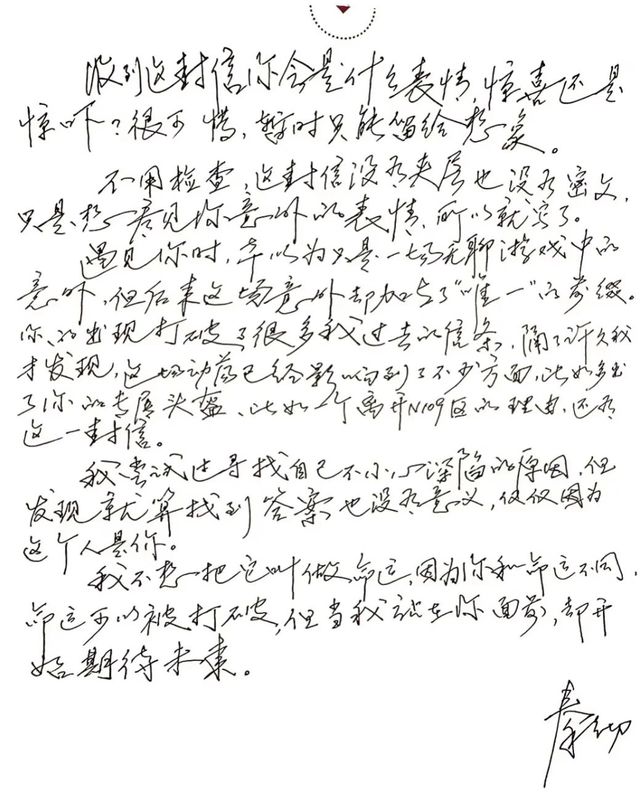 收到这封信你会是什么表情，惊喜还是
惊吓？很可惜，暂时只能留给想象。
不用检查，这封信没有夹层也没有密文，
只是想看见你意外的表情，所以就写了。
遇见你时，本以为只是一场无聊游戏中的
意外，但后来这场意外却加上了“唯一”的前缀。
你的出现打破了很多我过去的信条，隔了许久我
才发现，这场动荡已经影响到了不少方面，比如多出
了你的专属头盔、比如一个离开N109区的理由，还有
这一封信。
我尝试过寻找自己不小心深陷的原因，但
发现就算找到答案也没有意义，仅仅因为
这个人是你。
我不想把它叫做命运，因为你和命运不同，
命运可以被打破，但当我站在你面前，却开
始期待未来。
秦彻